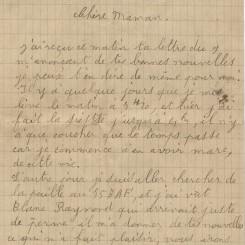 chère Maman.
j'ai reçu ce matin ta lettre du 1
m'anoncent de tes bonnes nouvelles
je peux t'en dire de même pour moi
Il y a quelque jours que je me
lève le matin à et hier j'ai
fait la sieste jusqu'à il n'y
a que coucher que le temps passe
car je commence à en avoir marre,
de cette vie.
L'autre jour je suis aller chercher de
la paille au 55 BAF, et j'ai vut
Blaine Raymond qui arrivait juste
de perme, il m'a donner de tes nouvelle
ce qui m'a fait plaisir, nous avons